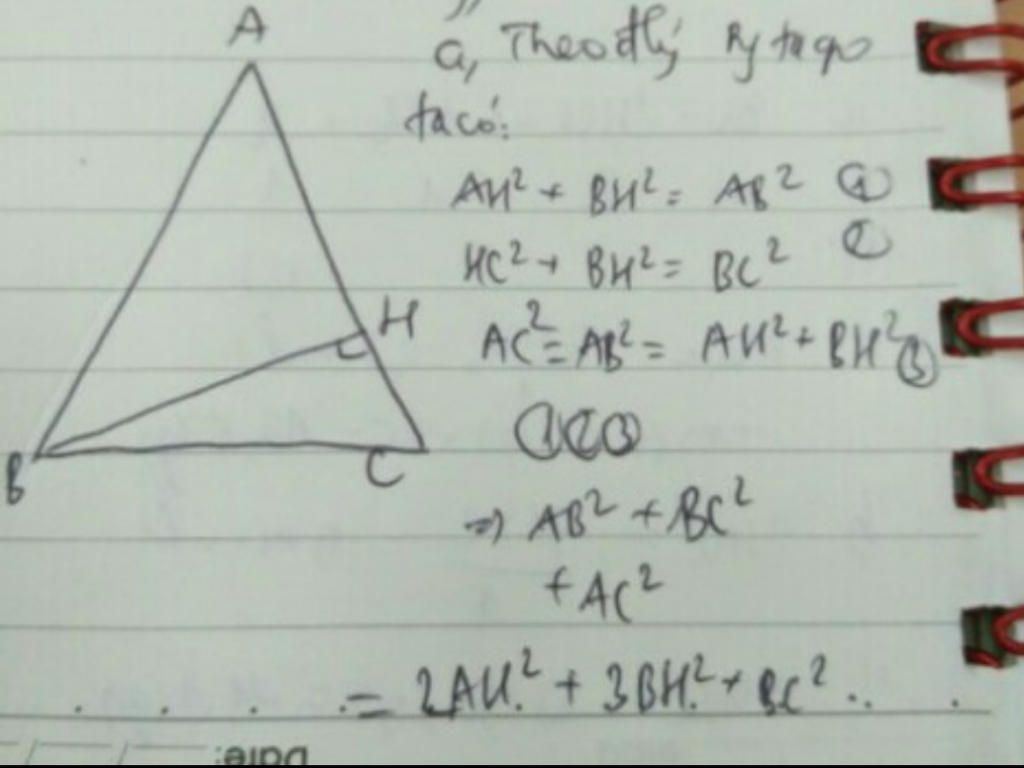 A
a, Theo đlý Pytago
ta có:
AH² + BH² = AB² ①
HC² + BH² = BC² ②
H
AC² = AB² = AH² + BH² ③
①②③
B
C
=> AB² + BC²
+ AC²
= 2AH² + 3BH² + BC²
Date: